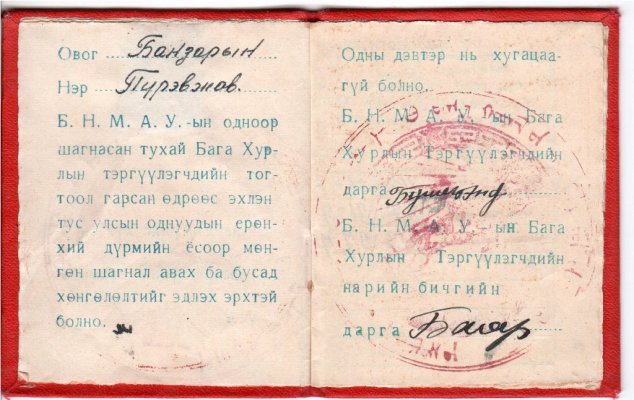 Овог Банзарын
Нэр Пүрэвжав.
Б. Н. М. А. У.-ын одноор
шагнасан тухай Бага Хур-
лын тэргүүлэгчдийн тог-
тоол гарсан өдрөөс эхлэн
тус улсын однуудын ерөн-
хий дүрмийн ёсоор мөн-
гөн шагнал авах ба бусад
хөнгөлөлтийг эдлэх эрхтэй
болно.
Одны дэвтэр нь хугацаа-
гүй болно.
Б. Н. М. А. У.-ын Бага
Хурлын Тэргүүлэгчдийн
дарга
Б. Н. М. А. У.-ын Бага
Хурлын Тэргүүлэгчдийн
нарийн бичгийн
дарга